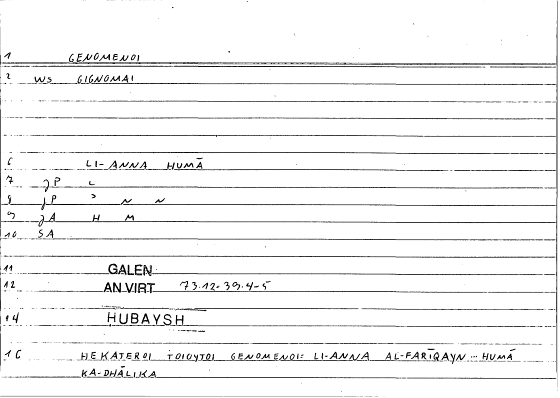 1 GENOMENOI
2 WS GIGNOMAI
6 LI-ANNA HUMĀ
7 JP L
8 JP ʾ N N
9 JA H M
10 SA
11 GALEN
12 AN VIRT 73.12-39.4-5
14 HUBAYSH
16 HEKATEROI TOIOYTOI GENOMENOI: LI-ANNA AL-FARĪQAYN ... HUMĀ
KA-DHĀLIKA